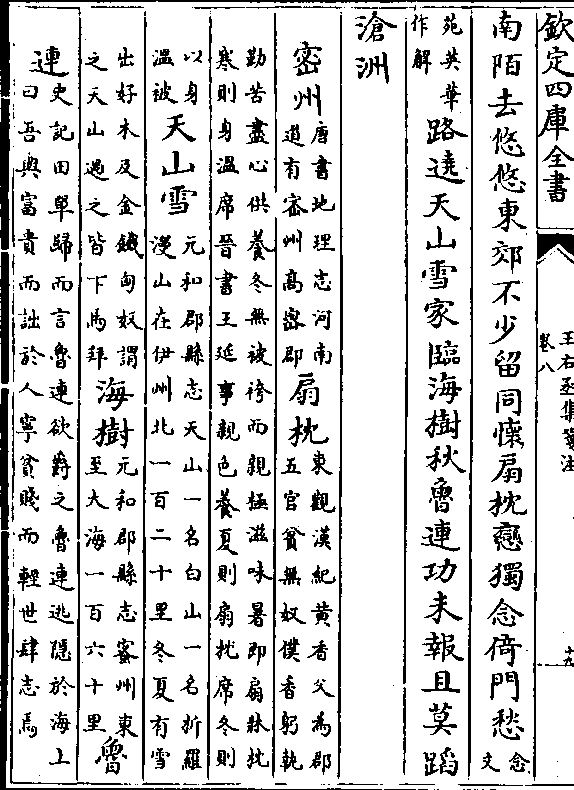 欽定四庫全書
王右丞集箋注
卷八
十九
南陌去悠悠東郊不少留同懷扇枕戀獨念倚門愁念文
苑英華作解路遶天山雪家臨海樹秋魯連功未報且莫蹈
滄洲
密州唐書地理志河南道有密州高密郡扇枕東觀漢紀黄香父為郡五官貧無奴僕香躬執
勤苦盡心供養冬無被袴而親極滋味暑即扇牀枕寒則身温席晉書王延事親色養夏則扇枕席冬則
以身温被天山雪元和郡縣志天山一名白山一名折羅漫山在伊州北一百二十里冬夏有雪
出好木及金鐵匈奴謂之天山過之皆下馬拜海樹元和郡縣志密州東至大海一百六十里魯
連史記田單歸而言魯連欲爵之魯連逃隱於海上曰吾與富貴而詘於人寧貧賤而輕世肆志焉